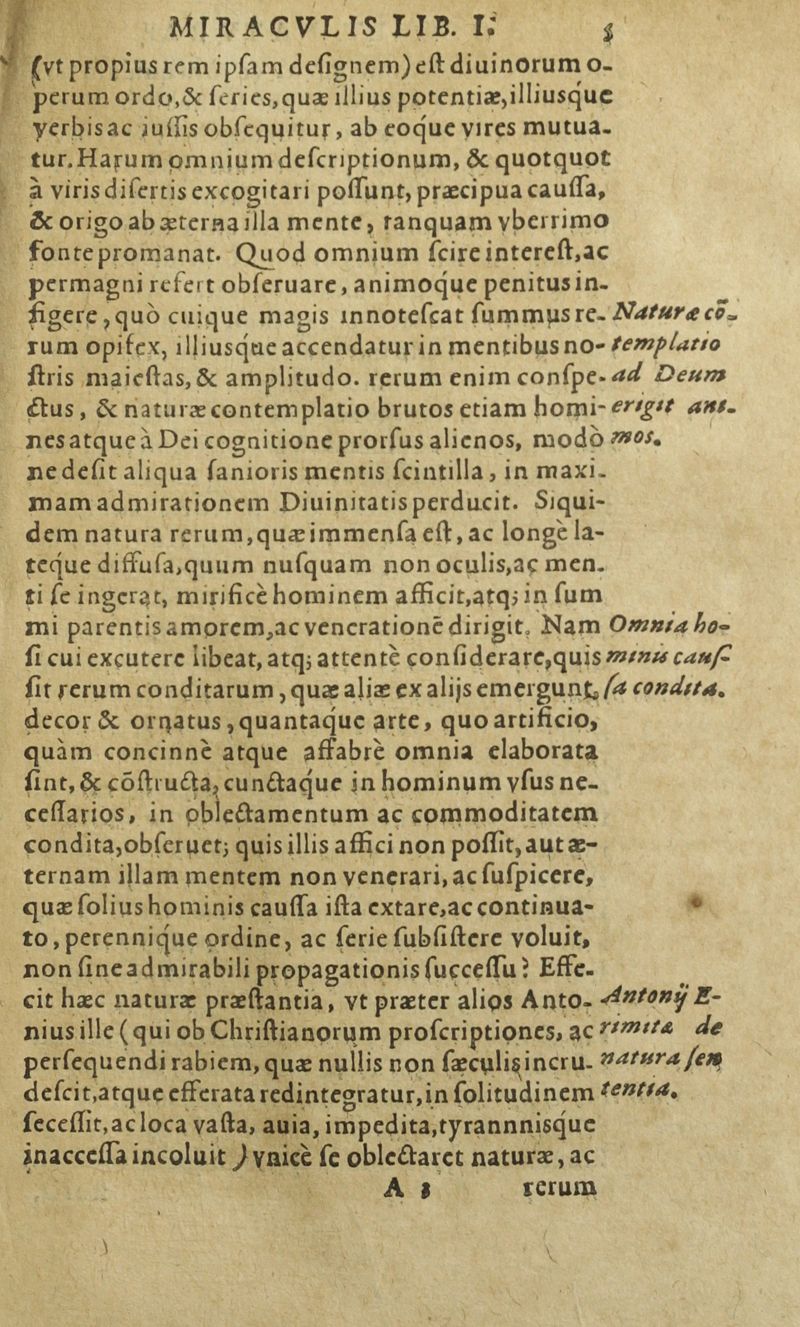 MIRACVLIS LIB. I. 5
(vt propius rem ipſam deſignem) eſt diuinorum o-
perum ordo, & ſeries, quæ illius potentiæ, illiusque
verbis ac iuſſis obſequitur, ab eoque vires mutua-
tur. Harum omnium deſcriptionum, & quotquot
à viris diſertis excogitari poſſunt, præcipua cauſſa,
& origo ab æterna illa mente, tanquam vberrimo
fonte promanat. Quod omnium ſcire intereſt, ac
permagni refert obſeruare, animoque penitus in-
figere, quò cuique magis innoteſcat ſummus re- Naturæ cō-
rum opifex, illiusque accendatur in mentibus no- templatio
ſtris maieſtas, & amplitudo. rerum enim conſpe- ad Deum
ctus, & naturæ contemplatio brutos etiam homi- erigit ani-
nes atque à Dei cognitione prorſus alienos, modò mos.
ne deſit aliqua ſanioris mentis ſcintilla, in maxi-
mam admirationem Diuinitatis perducit. Siqui-
dem natura rerum, quæ immenſa eſt, ac longè la-
teque diffuſa, quum nuſquam non oculis, ac men-
ti ſe ingerat, mirificè hominem afficit, atq; in ſum
mi parentis amorem, ac venerationē dirigit. Nam Omnia ho-
ſi cui excutere libeat, atq; attentè conſiderare, quis minis cauſ-
ſit rerum conditarum, quæ aliæ ex alijs emergunt, ſa condita.
decor & ornatus, quantaque arte, quo artificio,
quàm concinnè atque affabrè omnia elaborata
ſint, & cōſtructa, cunctaque in hominum vſus ne-
ceſſarios, in oblectamentum ac commoditatem
condita, obſeruet; quis illis affici non poſſit, aut æ-
ternam illam mentem non venerari, ac ſuſpicere,
quæ ſolius hominis cauſſa iſta extare, ac continua-
to, perennique ordine, ac ſerie ſubſiſtere voluit,
non ſine admirabili propagationis ſucceſſu? Effe-
cit hæc naturæ præſtantia, vt præter alios Anto- Antonij E-
nius ille (qui ob Chriſtianorum proſcriptiones, ac rimitæ de
perſequendi rabiem, quæ nullis non ſæculis incru- natura ſen
deſcit, atque efferata redintegratur, in ſolitudinem tentia.
ſeceſſit, ac loca vaſta, auia, impedita, tyrannnisque
inacceſſa incoluit) vnicè ſe oblectaret naturæ, ac
A 5 rerum